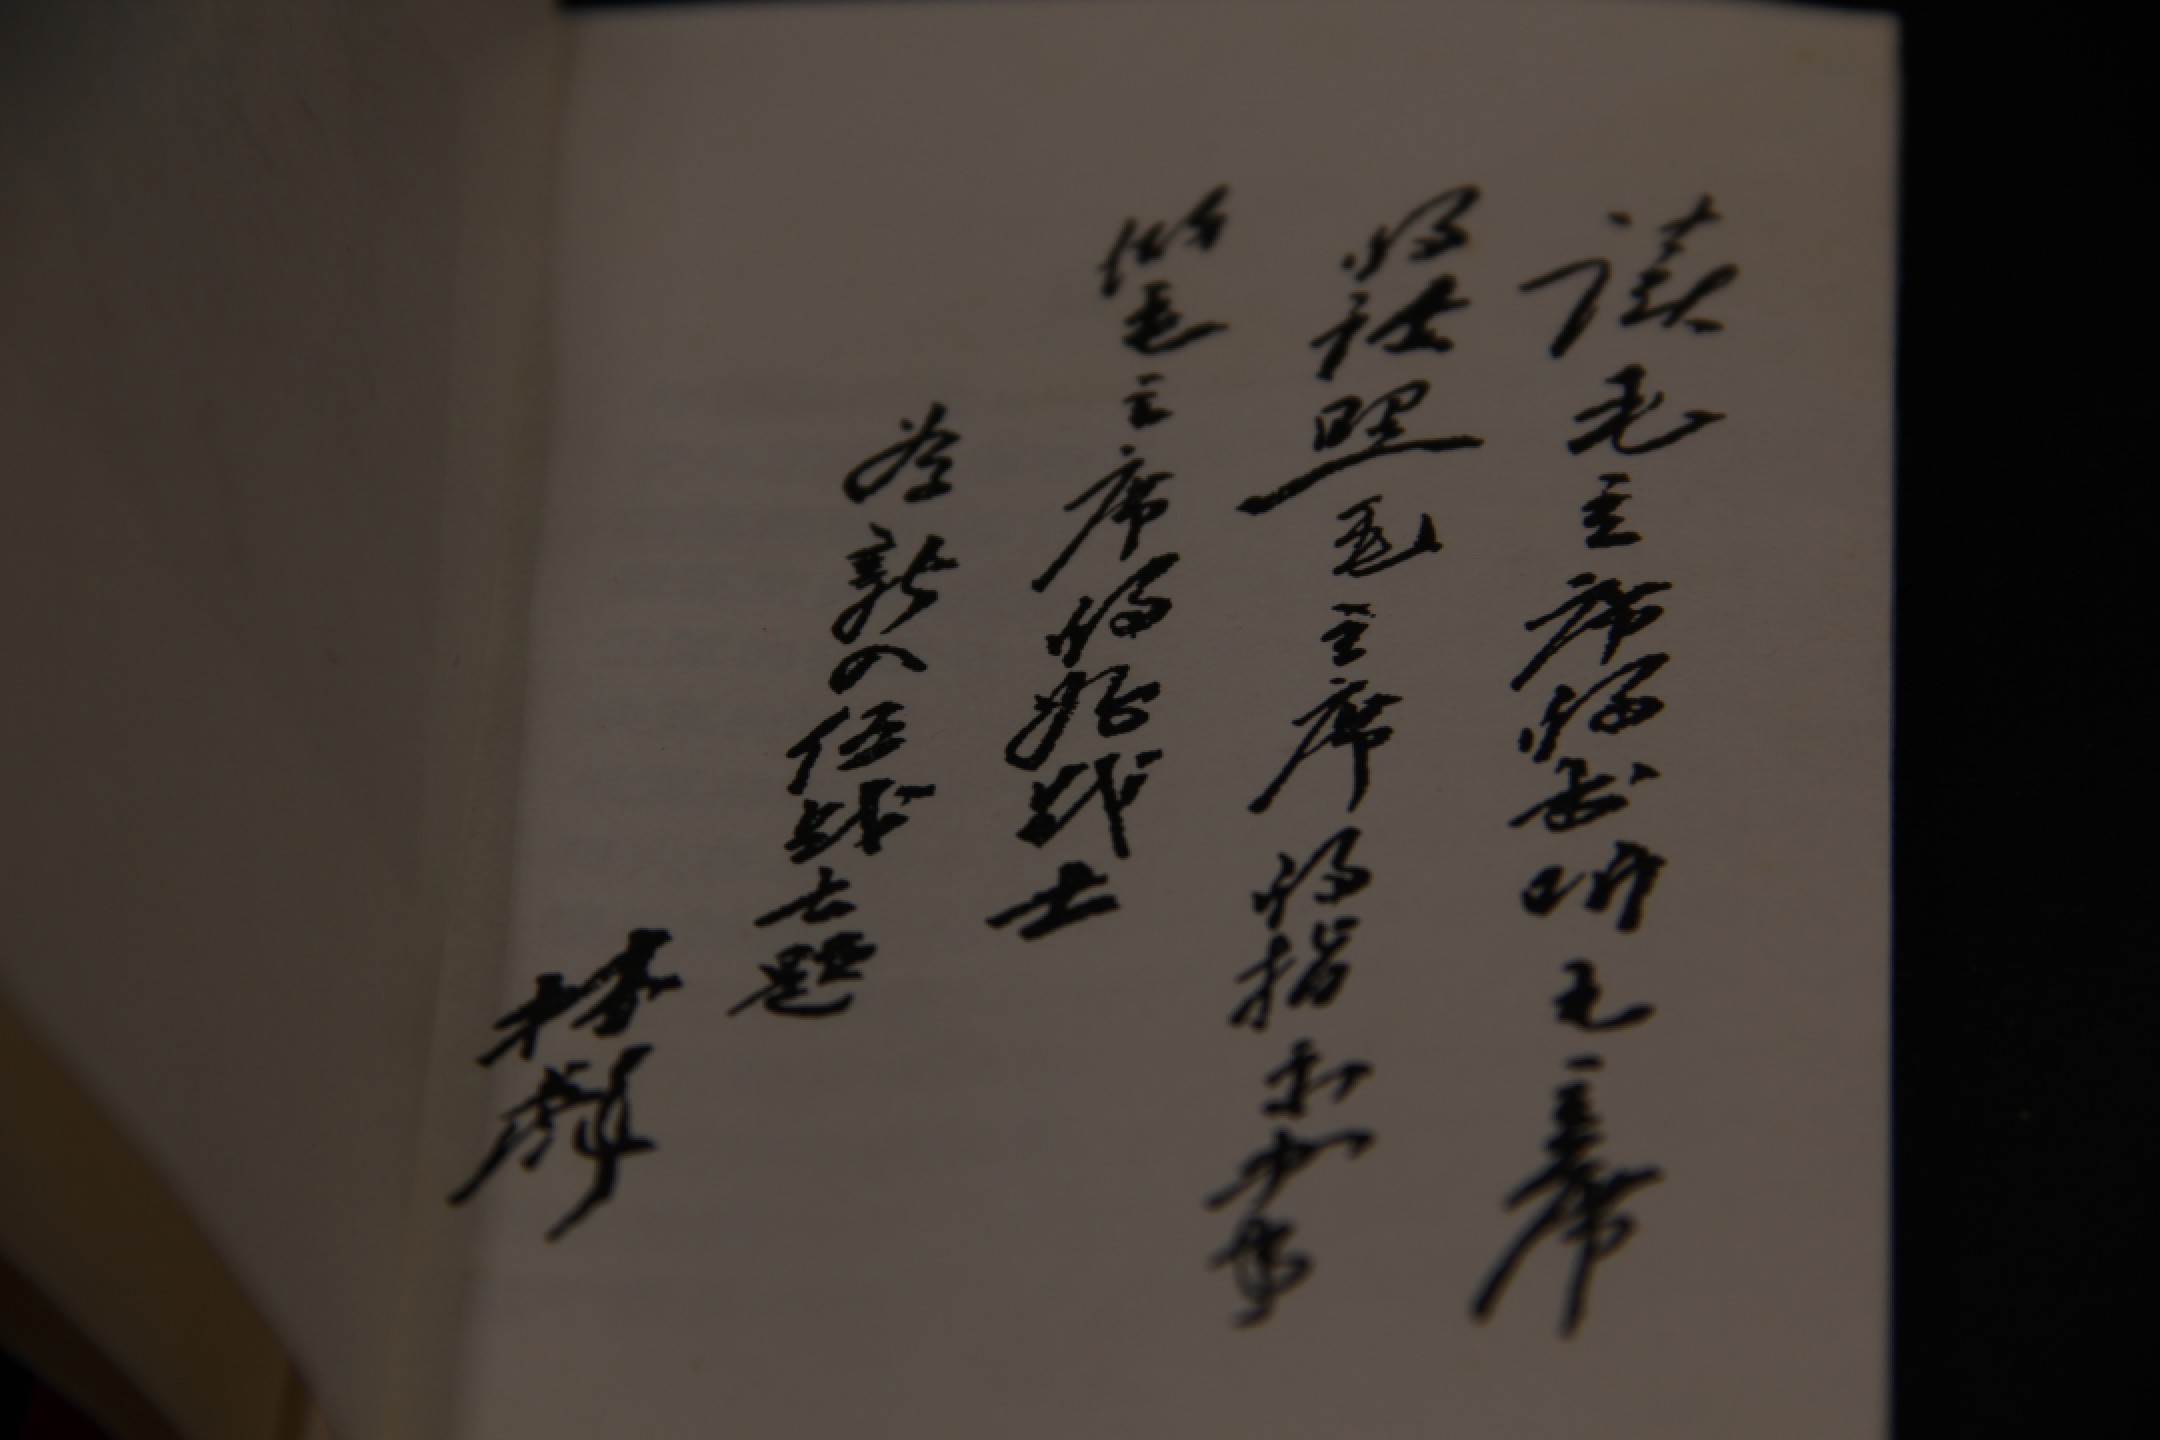 读毛主席的书听毛主席
的话照毛主席的指示办事
做毛主席的好战士
为新入伍战士题
林彪